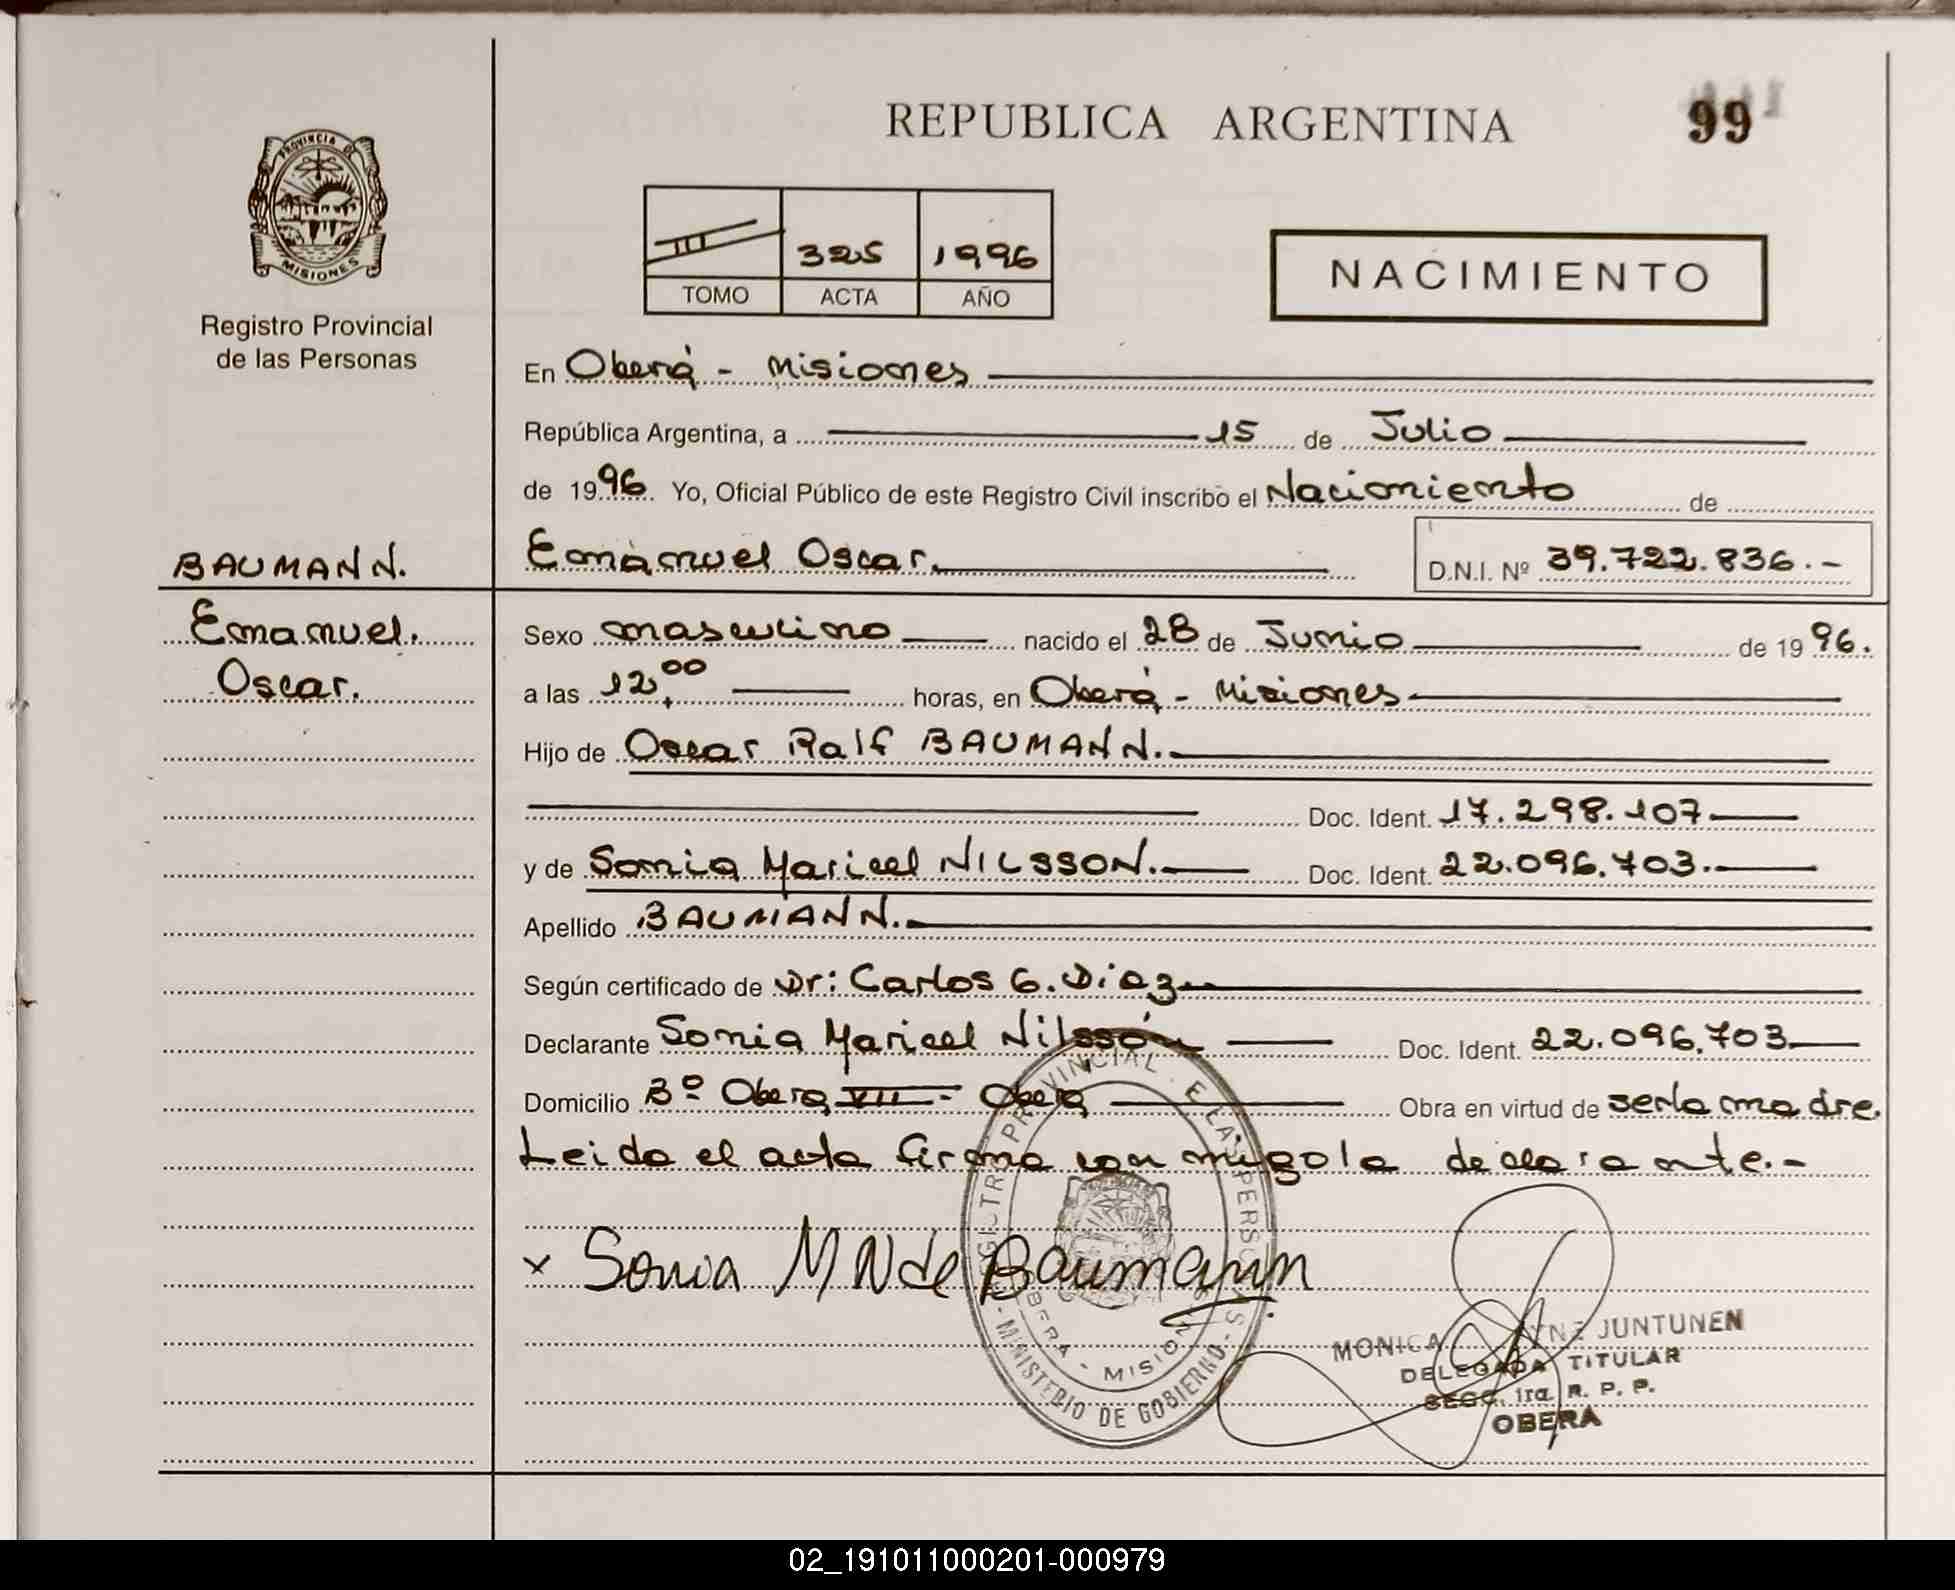 REPUBLICA ARGENTINA
99
PROVINCIA DE
MISIONES
Registro Provincial
de las Personas
325 1996
TOMO ACTA AÑO
NACIMIENTO
En Oberá - Misiones
República Argentina, a 15 de Julio
de 1996 Yo, Oficial Público de este Registro Civil inscribo el Nacimiento de
BAUMANN.
Emanuel Oscar.
D.N.I. Nº 39.722.836.-
Emanuel.
Oscar.
Sexo masculino nacido el 28 de Junio de 1996.
a las 12,00 horas, en Oberá - Misiones
Hijo de Oscar Ralf BAUMANN.
Doc. Ident. 17.298.107
y de Sonia Maricel NILSSON. Doc. Ident. 22.096.703.
Apellido BAUMANN.
Según certificado de Dr: Carlos G. Diaz
Declarante Sonia Maricel Nilssón Doc. Ident. 22.096.703
Domicilio Bº Obera VII - Obera Obra en virtud de ser la madre.
Leida el acta firma con migo la declarante.-
x Sonia M N de Baumann
REGISTRO PROVINCIAL DE LAS PERSONAS
OBERA - MISIONES
MINISTERIO DE GOBIERNO
MONICA JUNTUNEN
DELEGADA TITULAR
SECC. 1ra. R. P. P.
OBERA
02_191011000201-000979